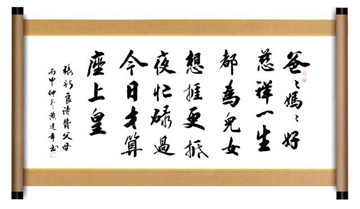 爸〻媽〻好
慈祥一生
都為兒女
想捱更抵
夜忙碌過
今日才算
座上皇
良詩贊父母
丙申仲冬黄書